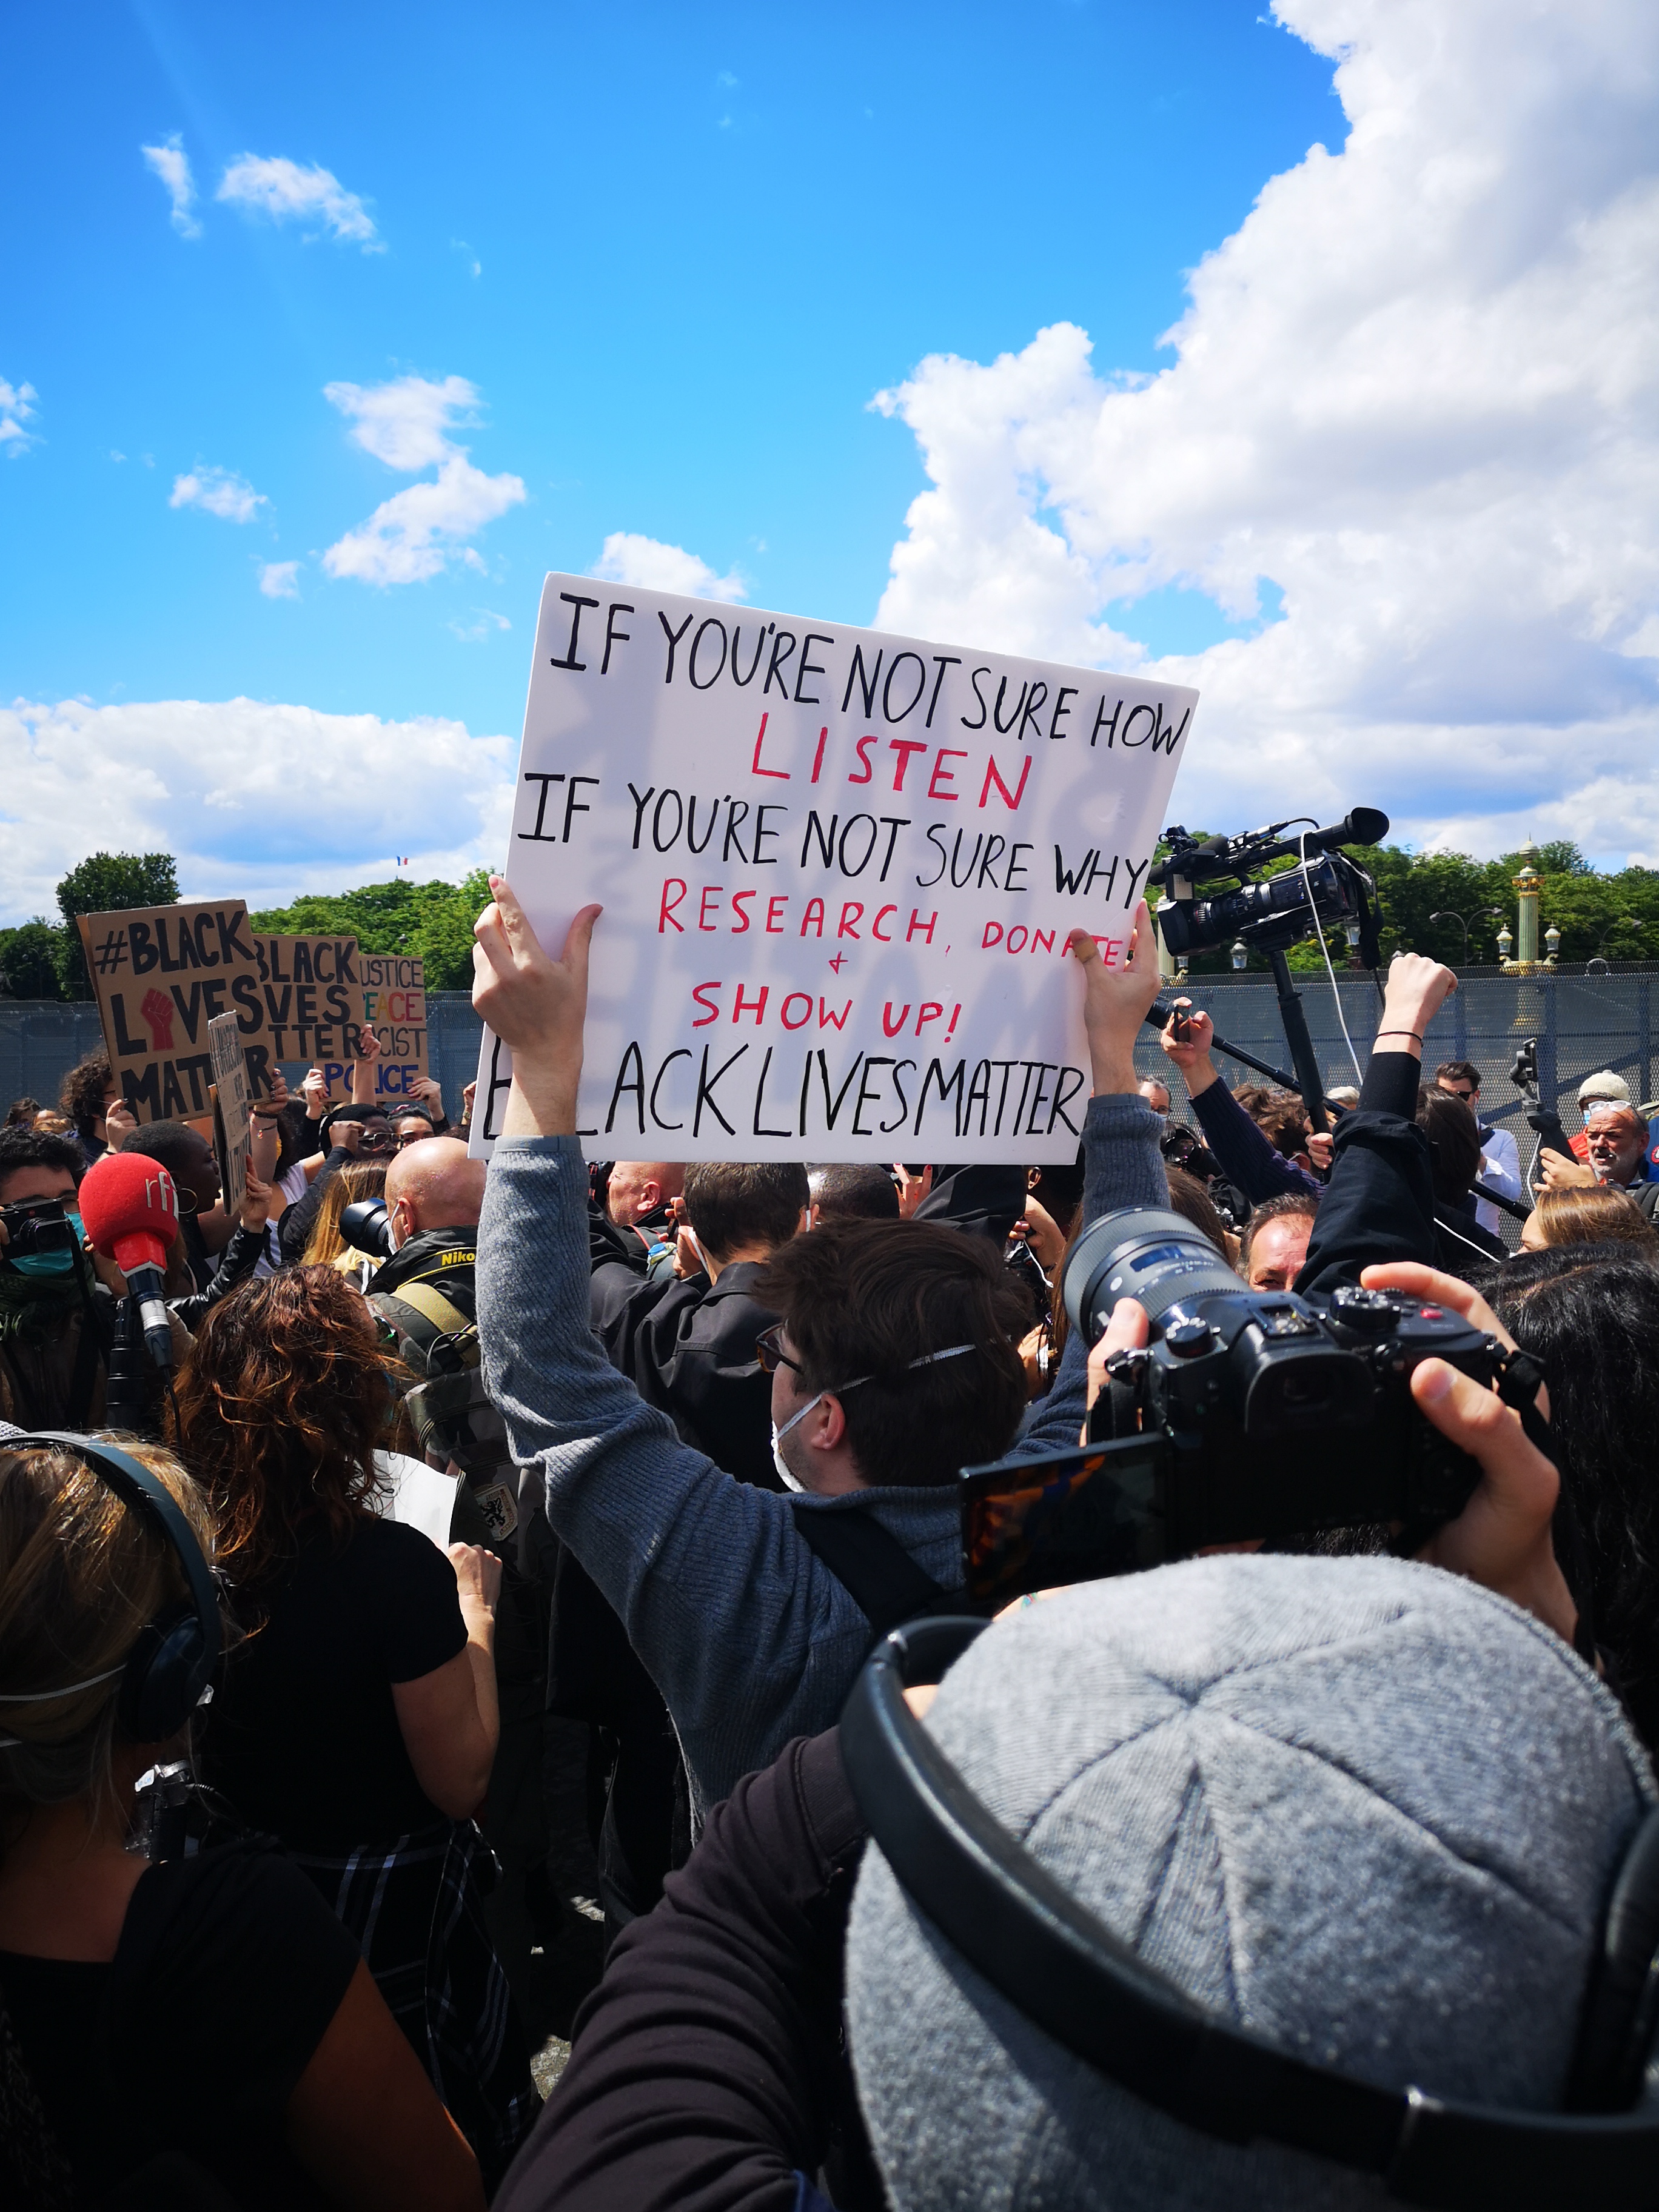 IF YOU'RE NOT SURE HOW
LISTEN
IF YOU'RE NOT SURE WHY
RESEARCH, DONATE
+
SHOW UP!
BLACK LIVES MATTER
#BLACK
LIVES
MATTER
BLACK
VES
TTER
USTICE
PEACE
CIST
POLICE
rfi
Niko